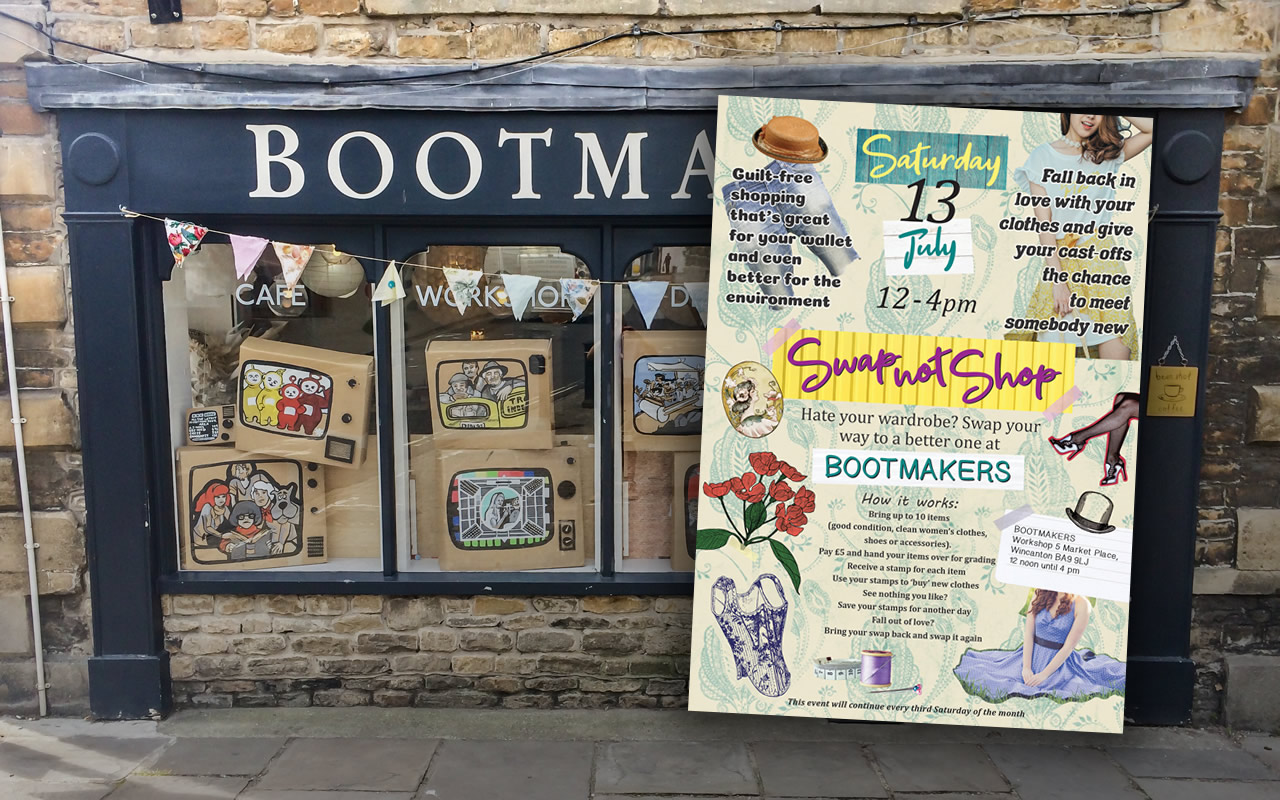 BOOTMA
CAFE
WORKSHOP
Saturday
13
July
12-4pm
Guilt-free
shopping
that's great
for your wallet
and even
better for the
environment
Fall back in
love with your
clothes and give
your cast-offs
the chance
to meet
somebody new
Swap not Shop
Hate your wardrobe? Swap your
way to a better one at
BOOTMAKERS
How it works:
Bring up to 10 items
(good condition, clean women's clothes,
shoes or accessories).
Pay £5 and hand your items over for grading
Receive a stamp for each item
Use your stamps to 'buy' new clothes
See nothing you like?
Save your stamps for another day
Fall out of love?
Bring your swap back and swap it again
BOOTMAKERS
Workshop 5 Market Place,
Wincanton BA9 9LJ
12 noon until 4 pm
This event will continue every third Saturday of the month
coffee